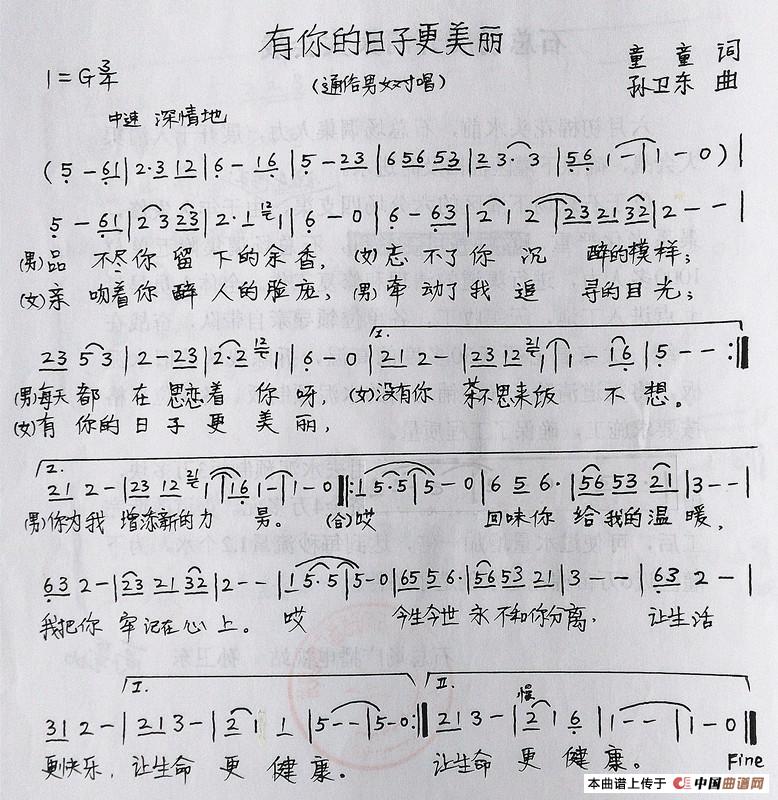 有你的日子更美丽
1=G 3/4 (通俗男女对唱) 童童 词
孙卫东 曲
中速 深情地
(5 - 61 | 2·3 12 | 6 - 16 | 5 - 23 | 6 56 53 | 2 3· 3 | 56 1 - | 1 - 0) |
5 - 61 | 2 3 23 | 2·1 12 1 | 6 - 0 | 6 - 63 | 2 1 2 | 23 21 32 | 2 - - |
(男)品 不尽你 留 下的余香, (女)忘 不了你 沉 醉的模样;
(女)亲 吻着你 醉 人的脸庞; (男)牵 动了我 追 寻的目光;
I.
23 5 3 | 2 - 23 | 2·2 12 1 | 6 - 0 | 21 2 - | 23 12 21 1 | 1 - 16 | 5 - - :||
(男)每天 都 在 思恋着 你 呀, (女)没有你 茶不思来饭 不 想。
(女)有 你的 日 子 更 美 丽,
2.
21 2 - | 23 12 21 1 | 16 1 - | 1 - 0 ||: 1 5·5 | 5 - 0 | 6 5 6· | 56 53 21 | 3 - - |
(男)你为我 增添新的力 男。 (合)哎 回味你 给我的温 暖,
63 2 - | 23 21 32 | 2 - - | 1 5·5 | 5 - 0 | 65 5 6· | 56 53 21 | 3 - - | 63 2 - |
我把你 牢记在心 上。 哎 今生今世 永不和你分离, 让生活
I. II.
慢
31 2 - | 21 3 - | 2 1 1 | 5 - - | 5 - 0 :|| 21 3 - | 2 1 6 | 1 - - | 1 - 0 ||
更快乐, 让生命 更 健 康。 让生命 更 健 康。 Fine
本曲谱上传于 中国曲谱网